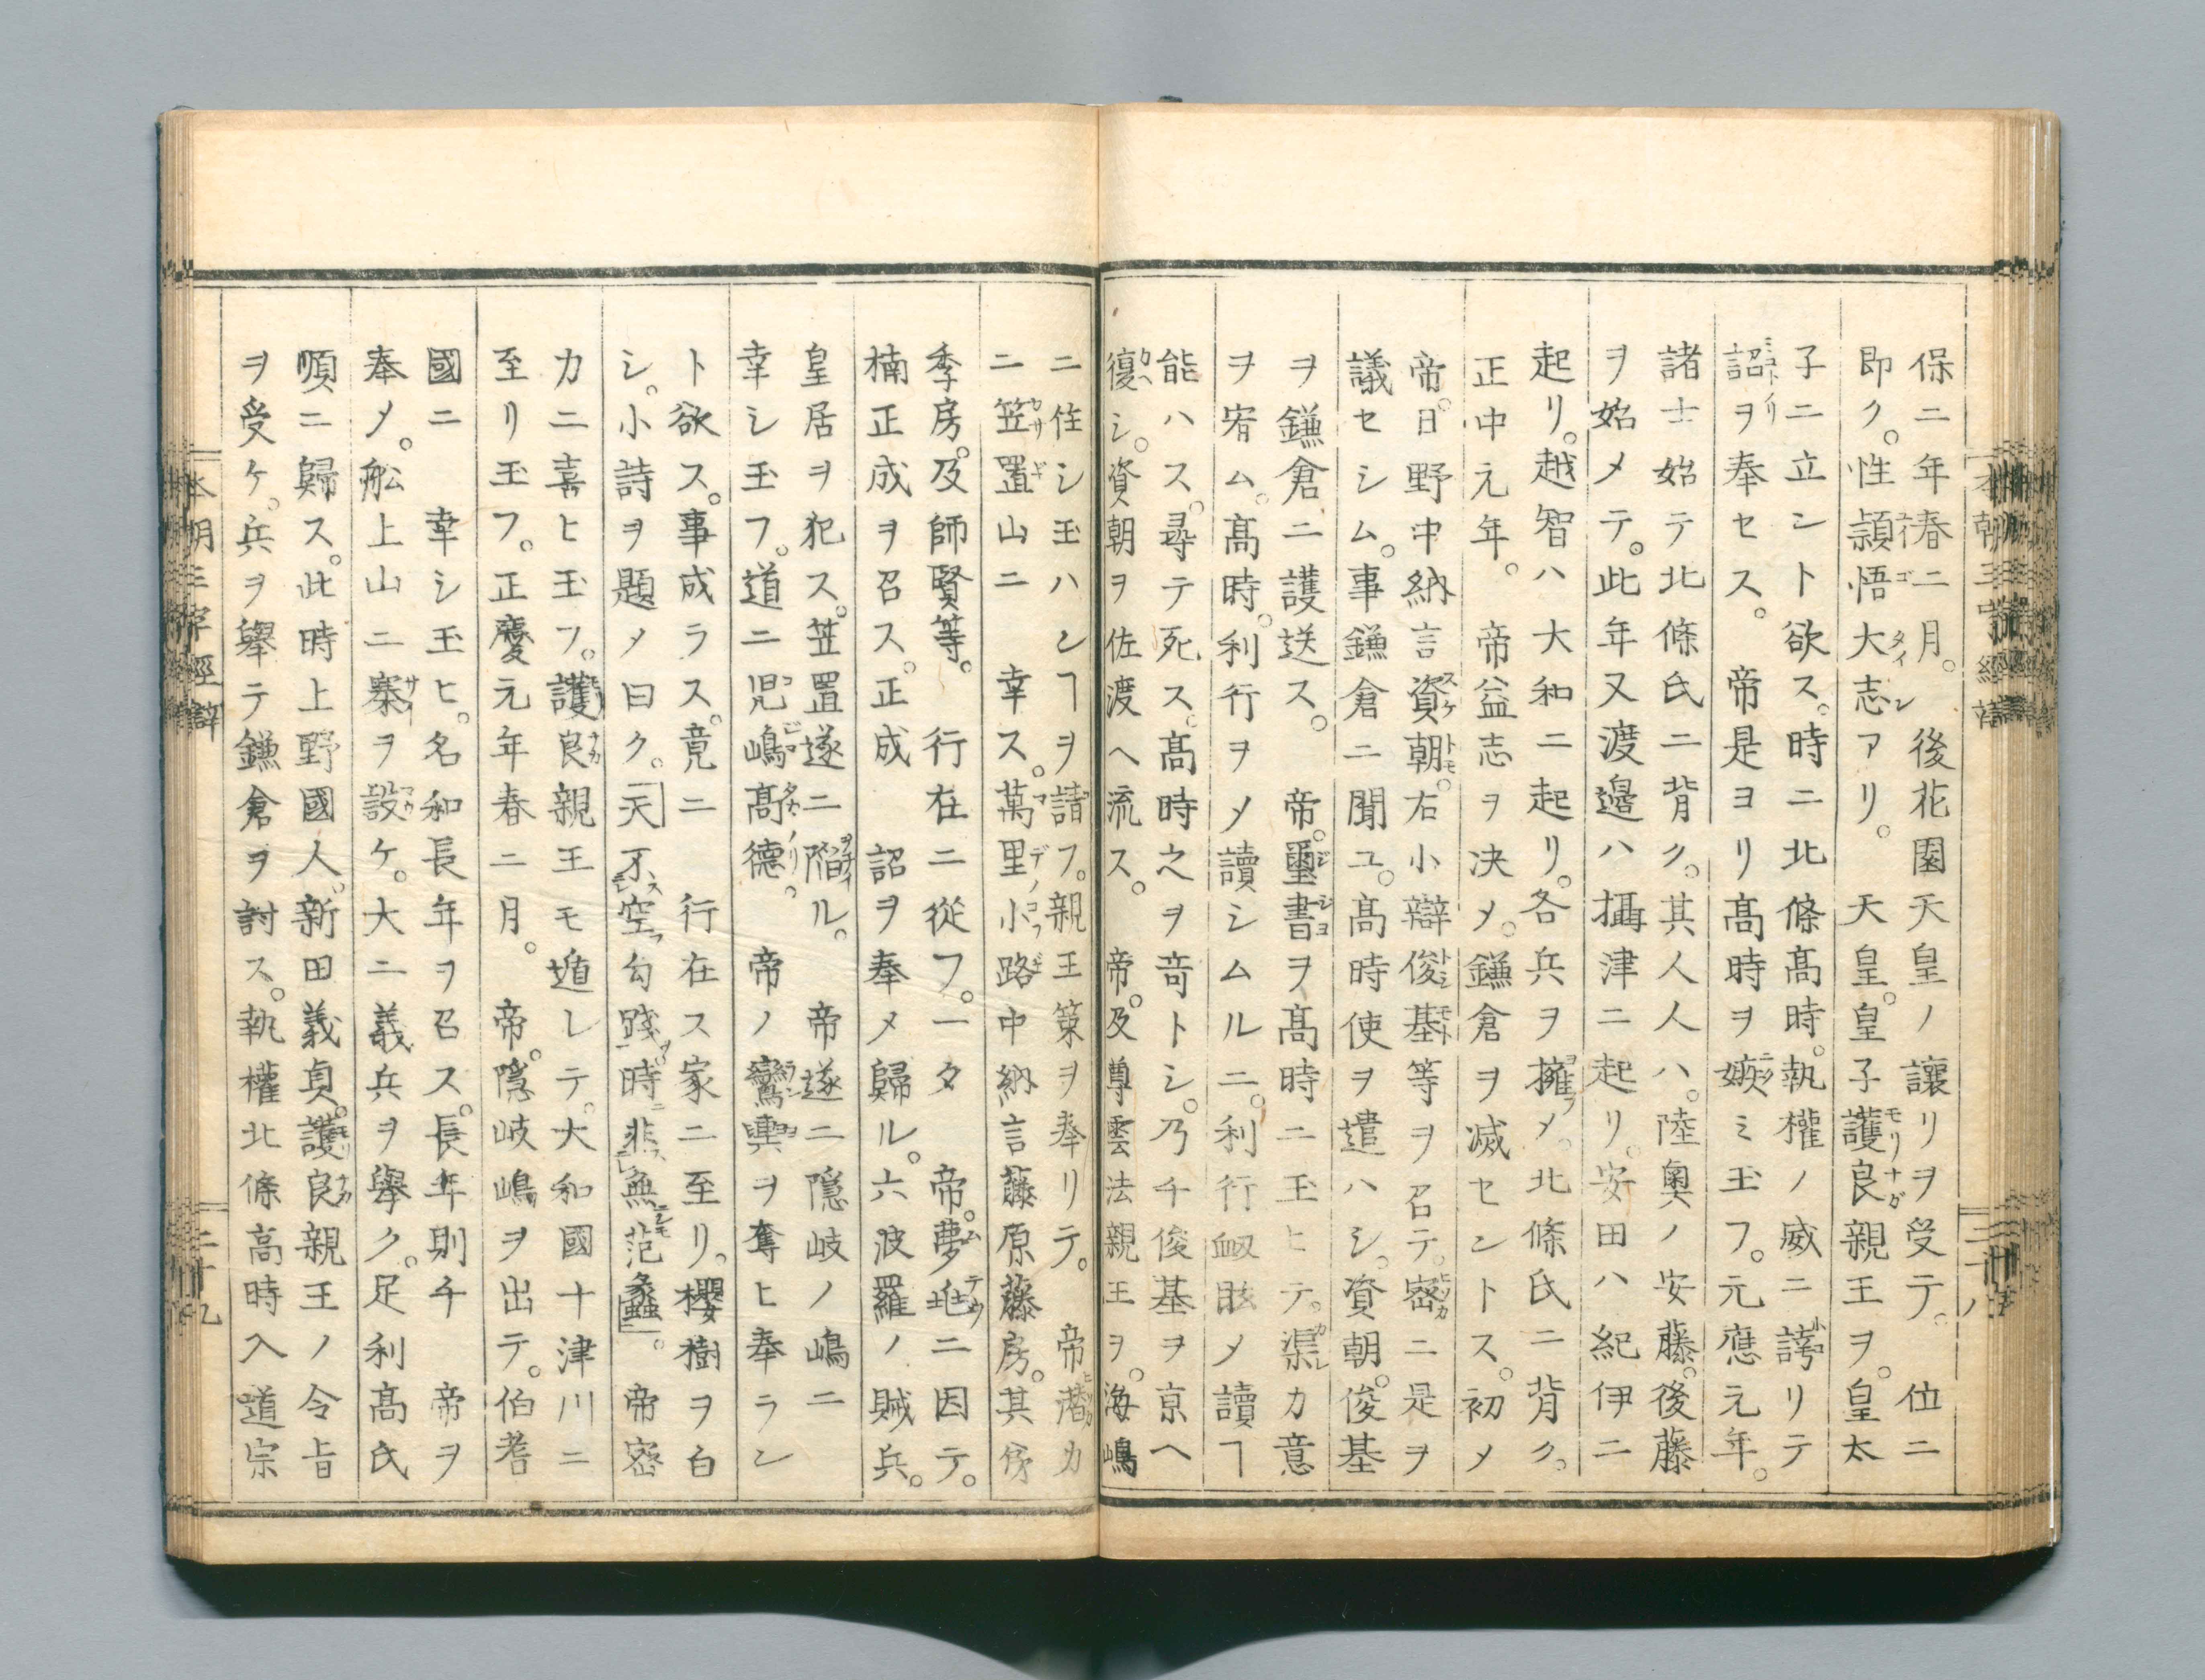 保二年春二月。後花園天皇ノ讓リヲ受テ。位ニ
即ク。性頴悟大志アリ。天皇。皇子護良親王ヲ。皇太
子ニ立シト欲ス。時ニ北條髙時。執權ノ威ニ誇リテ
詔ヲ奉セス。帝是ヨリ髙時ヲ嫉ミ玉フ。元應元年。
諸士始テ北條氏ニ背ク。其人人ハ。陸奧ノ安藤。後藤
ヲ始メテ。此年又渡邉ハ攝津ニ起リ。安田ハ紀伊ニ
起リ。越智ハ大和ニ起リ。各兵ヲ擁メ。北條氏ニ背ク。
正中元年。帝益志ヲ决メ。鎌倉ヲ滅セントス。初メ
帝。日野中納言資朝。右小辯俊基等ヲ召テ。密ニ是ヲ
議セシム。事鎌倉ニ聞ユ。髙時使ヲ遣ハシ。資朝。俊基
ヲ鎌倉ニ護送ス。帝。璽書ヲ髙時ニ玉ヒテ。渠カ意
ヲ宥ム。髙時。利行ヲメ讀シムルニ。利行衂眩メ讀ヿ
能ハス。尋テ死ス。髙時之ヲ竒トシ。乃チ俊基ヲ京ヘ
復シ。資朝ヲ佐渡ヘ流ス。帝。及尊雲法親王ヲ。海嶋
ニ住シ玉ハシヿヲ請フ。親王策ヲ奉リテ。帝潜カ
ニ笠置山ニ幸ス。萬里小路中納言藤原藤房。其弟
季房。及師賢等。行在ニ從フ。一夕帝。夢兆ニ因テ。
楠正成ヲ召ス。正成詔ヲ奉メ歸ル。六波羅ノ賊兵。
皇居ヲ犯ス。笠置遂ニ陷ル。帝遂ニ隱岐ノ嶋ニ
幸シ玉フ。道ニ児嶋髙德。帝ノ鸞輿ヲ奪ヒ奉ラシ
ト欲ス。事成ラス。竟ニ行在ス家ニ至リ。櫻樹ヲ白
シ。小詩ヲ題メ曰ク。天不空勾踐。時非無范蠡。帝密
カニ喜ヒ玉フ。護良親王モ遁レテ。大和國十津川ニ
至リ玉フ。正慶元年春二月。帝。隱岐嶋ヲ出テ。伯耆
國ニ幸シ玉ヒ。名和長年ヲ召ス。長年則チ帝ヲ
奉メ。舩上山ニ寨ヲ設ケ。大ニ義兵ヲ擧ク。足利髙氏
順ニ歸ス。此時上野國人。新田義貞。護良親王ノ令旨
ヲ受ケ。兵ヲ擧テ鎌倉ヲ討ス。執權北條高時入道宗